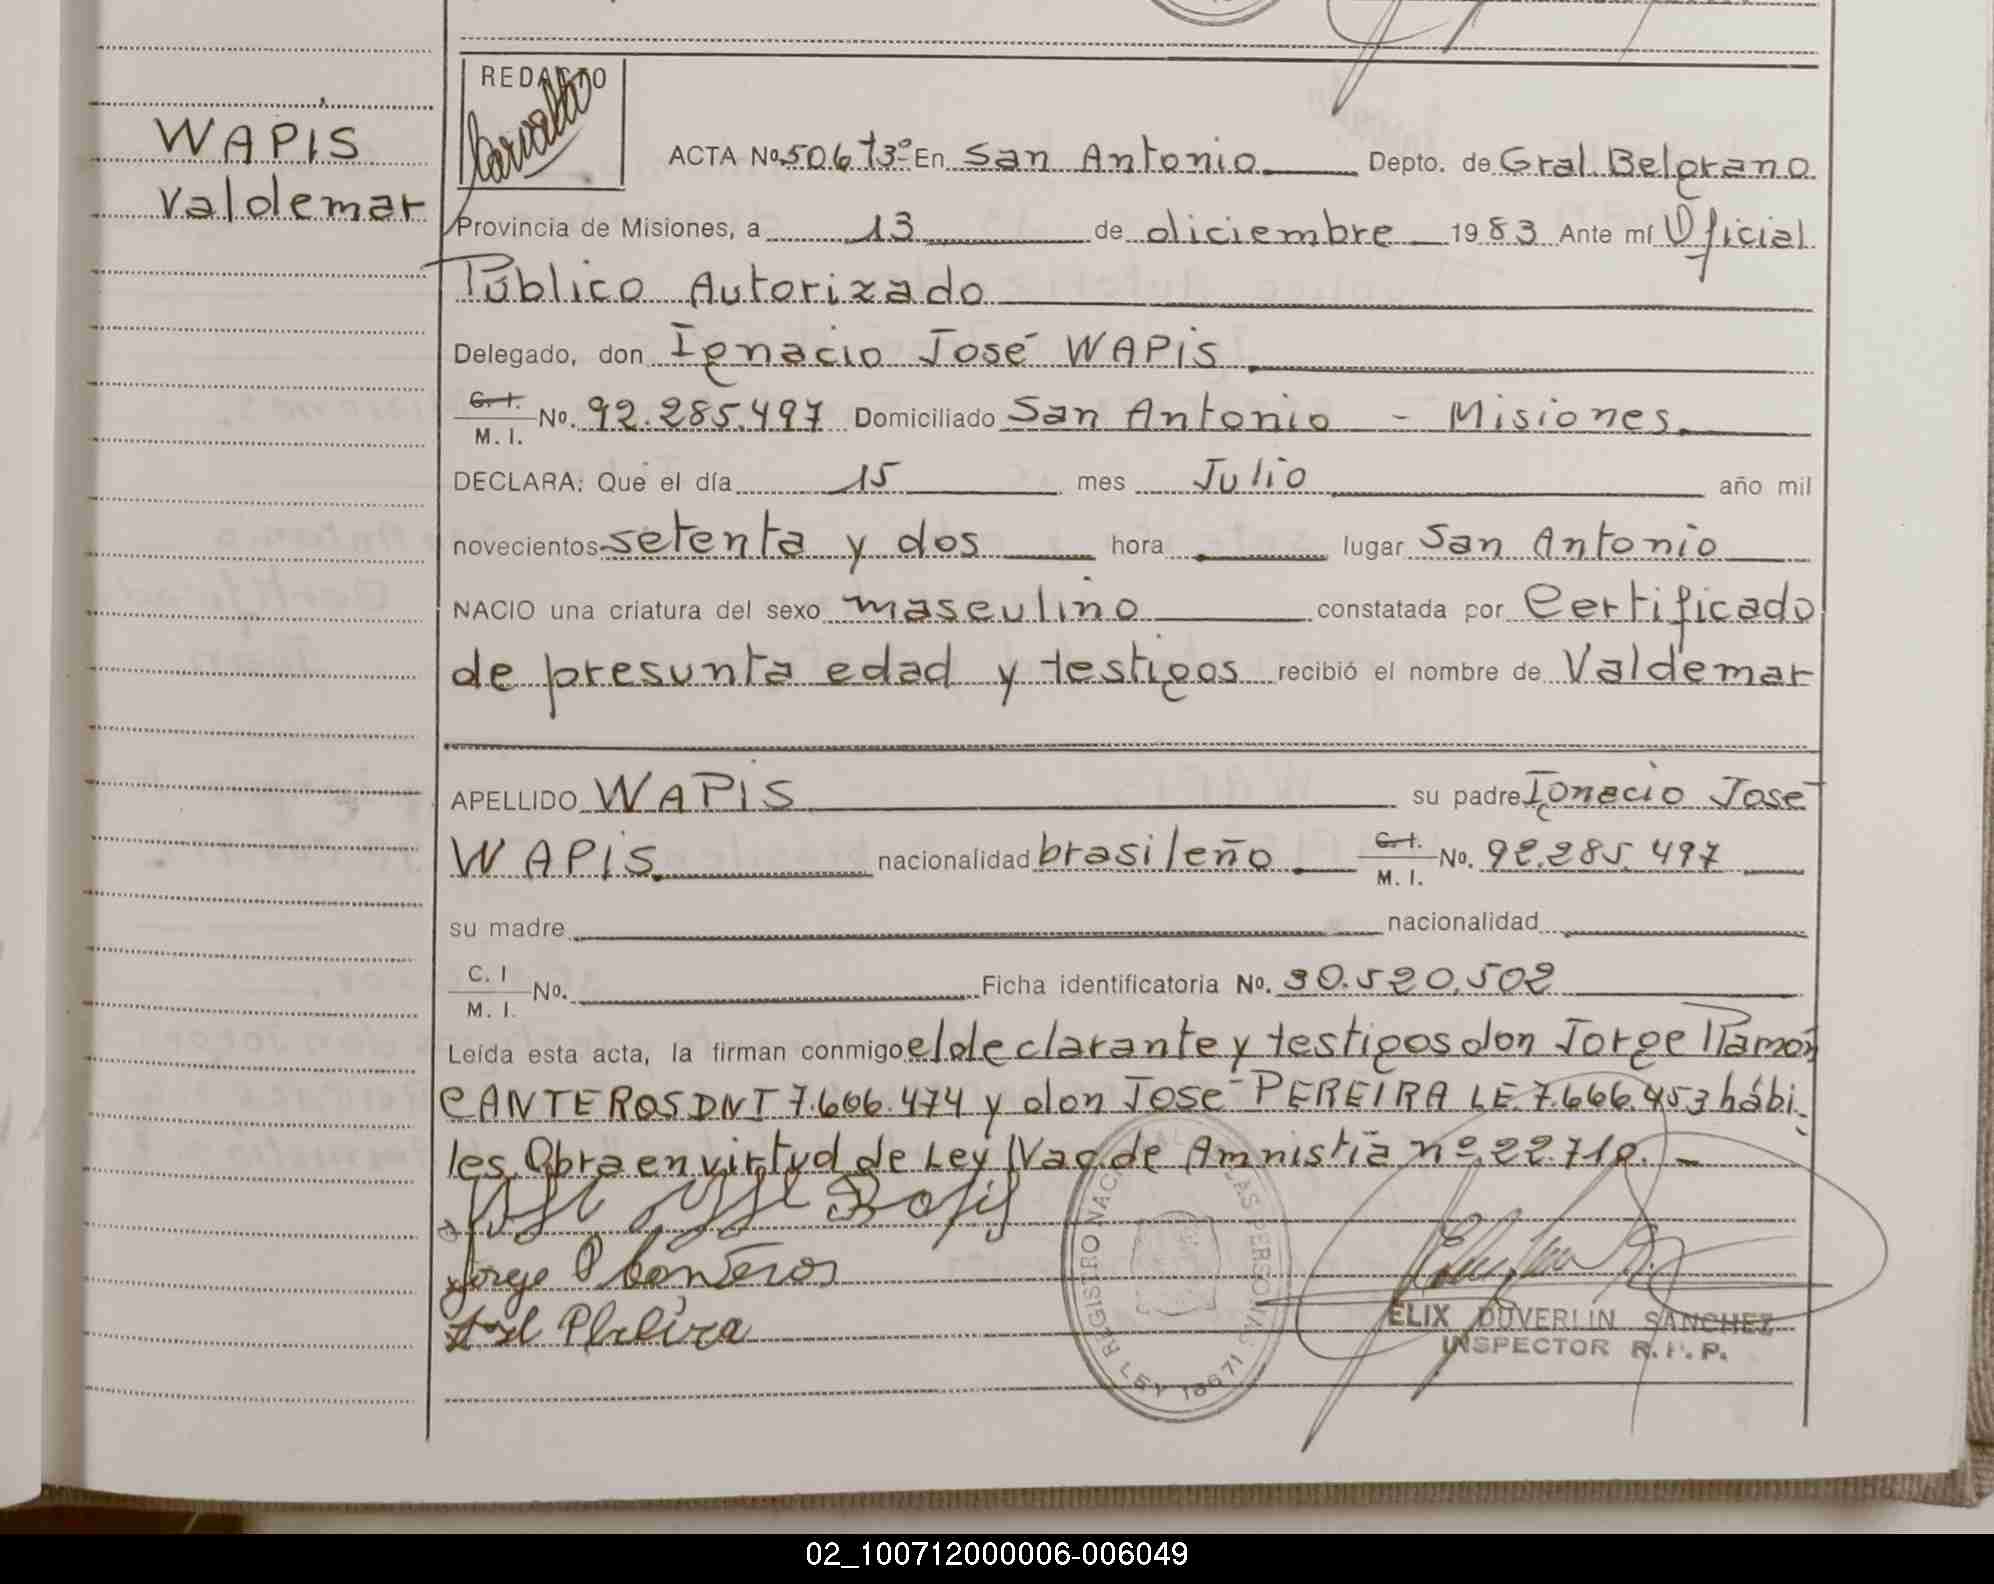 WAPIS
Valdemar
REDACTO
Carvallo
ACTA No. 506 T3º En San Antonio Depto. de Gral. Belgrano
Provincia de Misiones, a 13 de diciembre 1983 Ante mí Oficial
Público Autorizado
Delegado, don Ignacio José WAPIS
C. I.
M. I. No. 92.285.497 Domiciliado San Antonio - Misiones
DECLARA: Que el día 15 mes Julio año mil
novecientos setenta y dos hora lugar San Antonio
NACIO una criatura del sexo masculino constatada por Certificado
de presunta edad y testigos recibió el nombre de Valdemar
APELLIDO WAPIS su padre Ignacio José
WAPIS nacionalidad brasileño C. I.
M. I. No. 92.285.497
su madre nacionalidad
C. I
M. I. No. Ficha identificatoria No. 30.520.502
Leída esta acta, la firman conmigo el declarante y testigos don Jorge Ramón
CANTEROS DNI 7.606.474 y don José PEREIRA LE. 7.666.453 hábi-
les. Obra en virtud de Ley Nac. de Amnistía nº 22.710. -
Jorge R Canteros
José Pereira
REGISTRO NACIONAL DE LAS PERSONAS
LEY 18671
ELIX DUVERLIN SANCHEZ
INSPECTOR R. P. P.
02_100712000006-006049